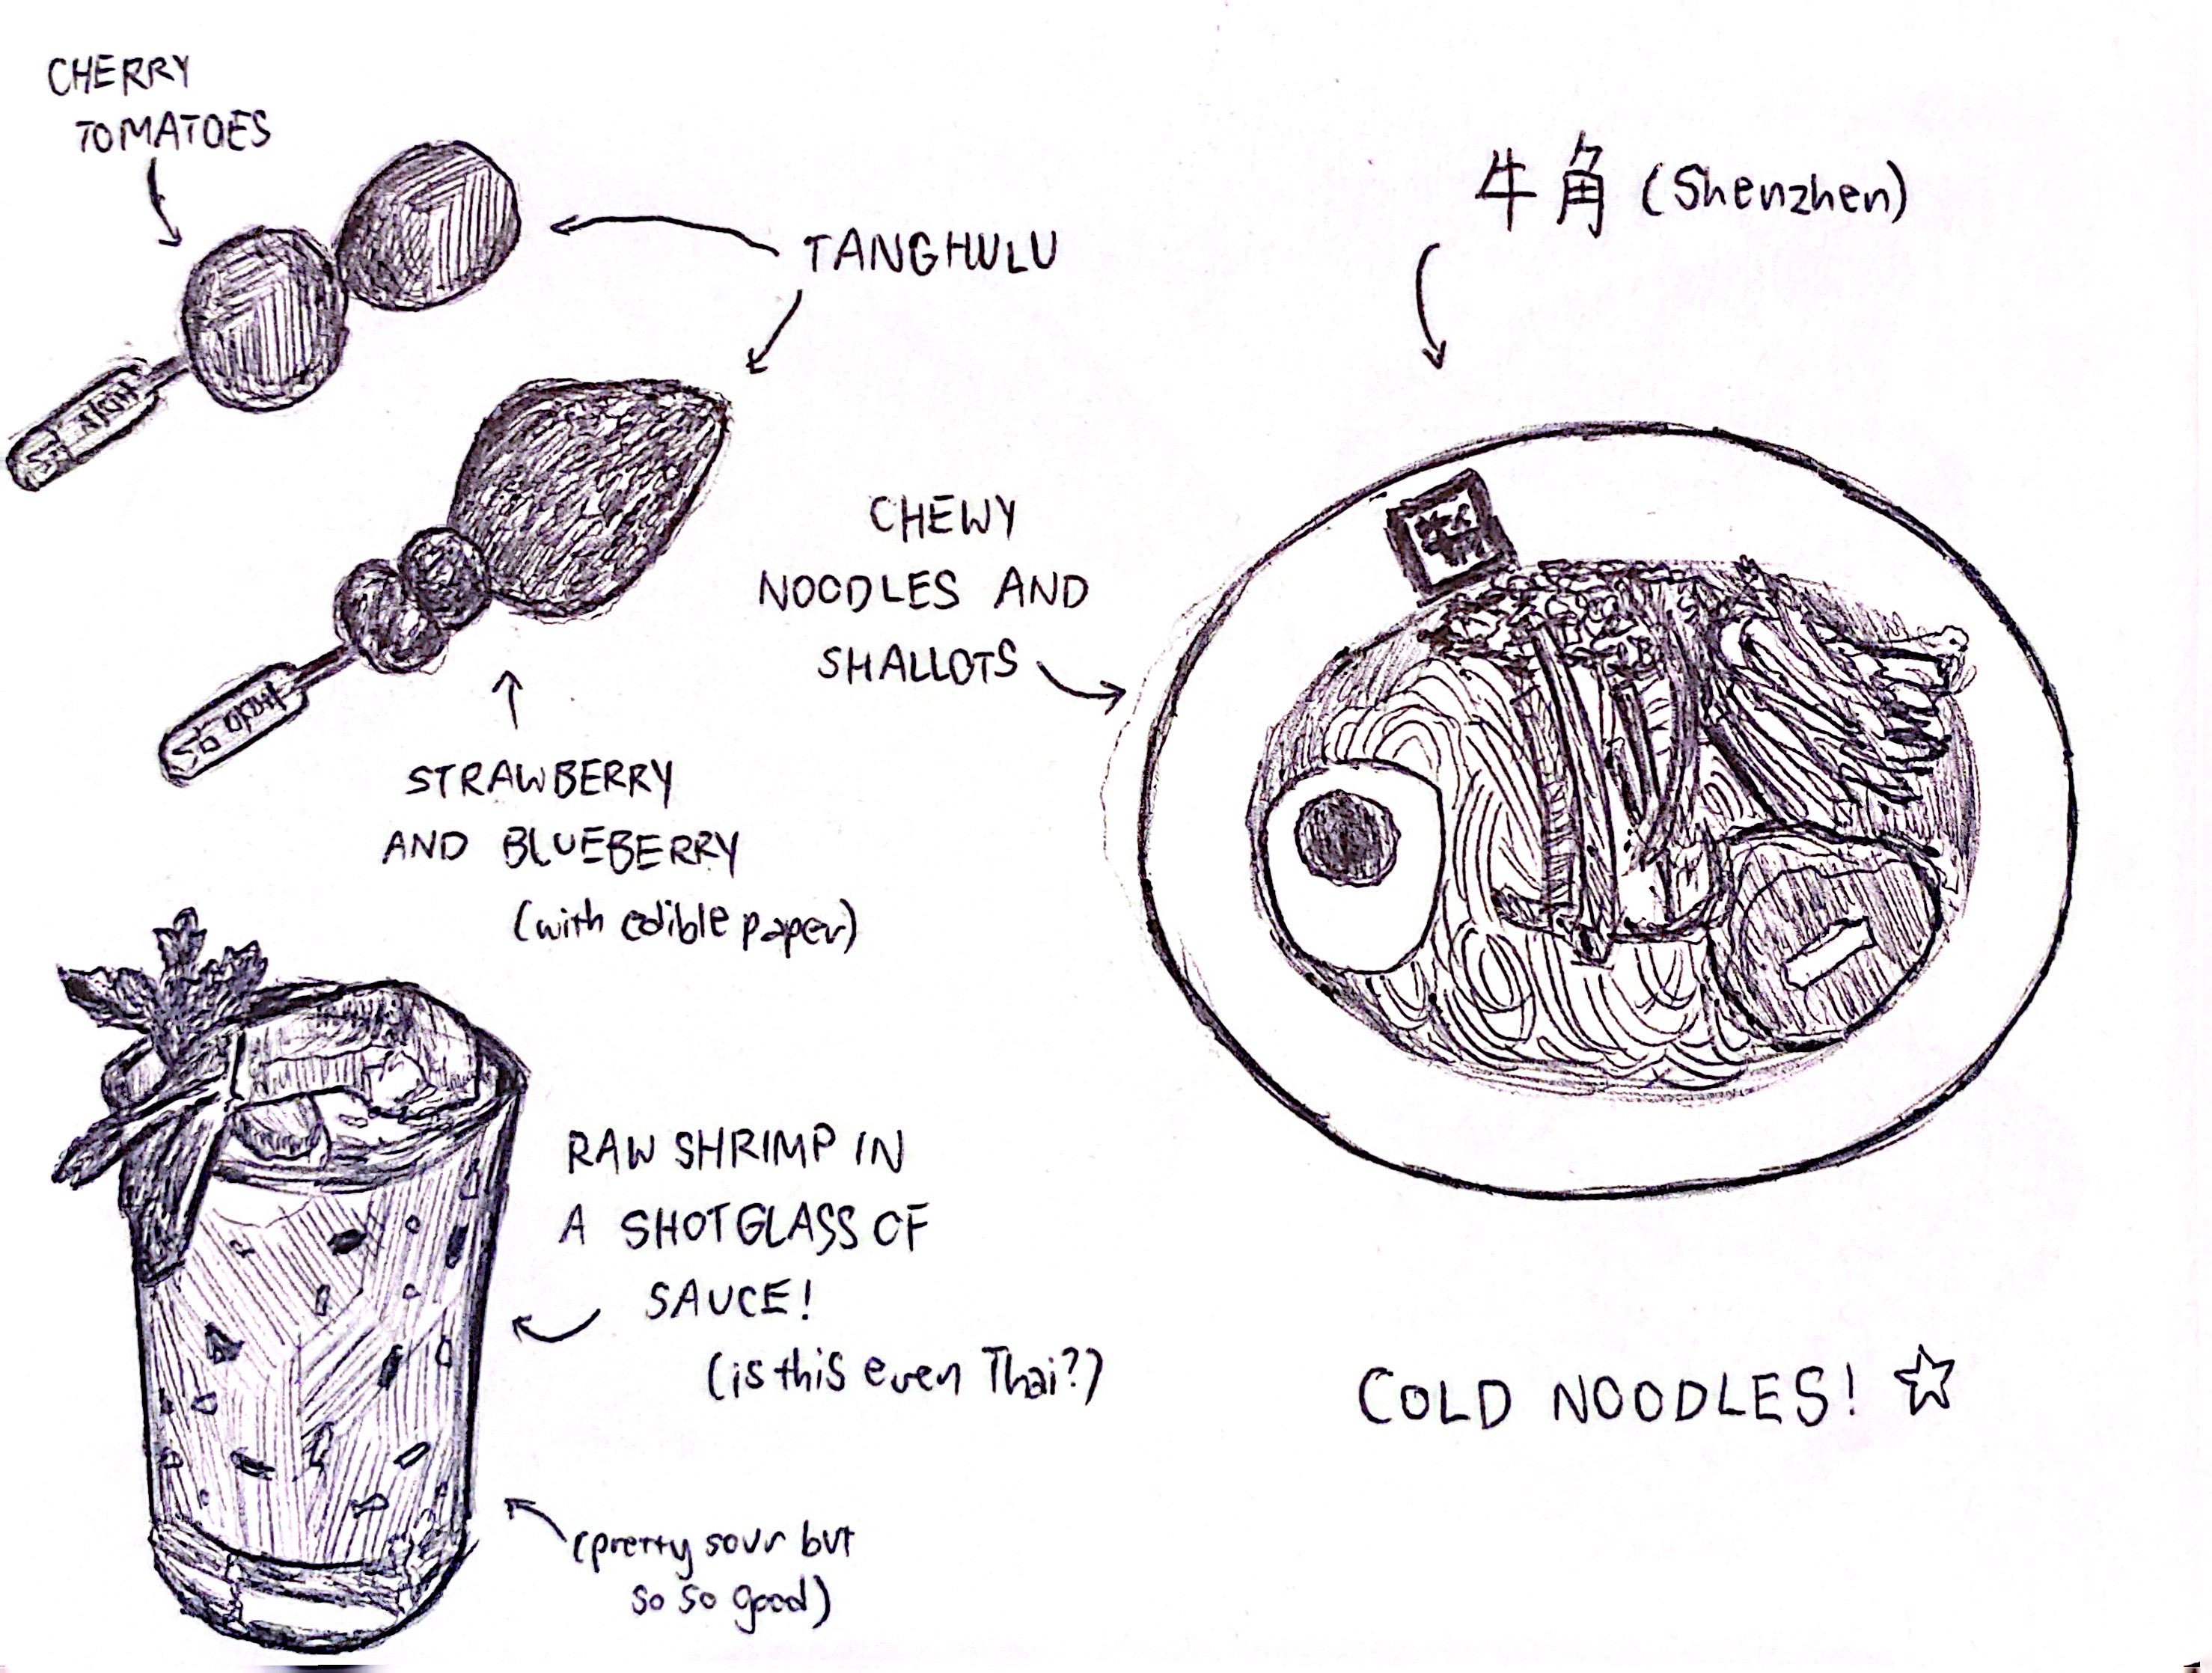 CHERRY
TOMATOES
TANGHULU
STRAWBERRY
AND BLUEBERRY
(with edible paper)
RAW SHRIMP IN
A SHOTGLASS OF
SAUCE!
(is this even Thai?)
(pretty sour but
so so good)
牛角 (Shenzhen)
CHEWY
NOODLES AND
SHALLOTS
COLD NOODLES!